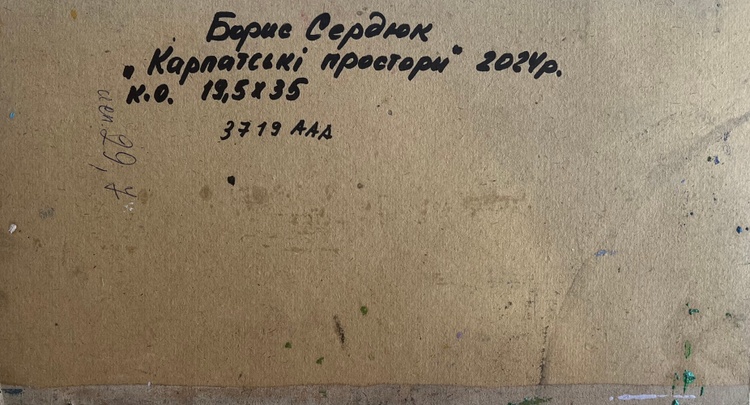 Борис Сердюк
„Карпатські простори" 2024р.
к.о. 19,5х35
3719 ААА
29,7